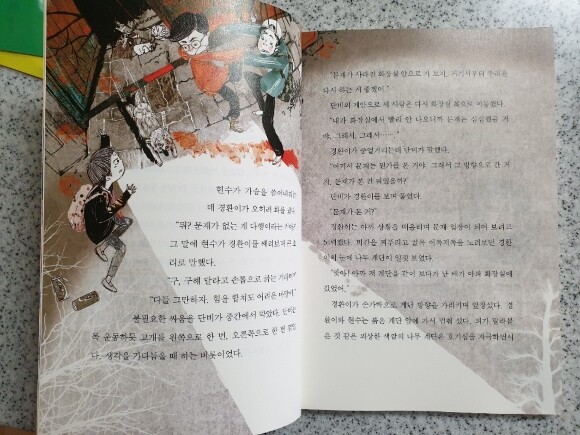 현수가 가슴을 쓸어내리는
데 경환이가 오히려 화를 냈다.
"뭐? 문제가 없는 게 다행이라는
그 말에 현수가 경환이를 째려보며
러로 말했다.
"구, 구해 달라고 손톱으로 긁는
"다들 그만하자. 힘을 합쳐도 어려운
불필요한 싸움을 단비가 중간에서 막았다.
목 운동하듯 고개를 왼쪽으로 한 번, 오른쪽으로 한 번
다. 생각을 가다듬을 때 하는 버릇이었다.
"문제가 사라진 화장실 앞으로 가 보자. 거기서부터 추리를
다시 하는 게 좋겠어."
단비의 제안으로 세 사람은 다시 화장실 쪽으로 이동했다.
"내가 화장실에서 빨리 안 나오니까 문제는 심심했을 거
야. 그래서, 그래서……."
경환이가 중얼거리는데 단비가 말했다.
"여기서 문제는 뭔가를 본 거야. 그래서 그 방향으로 간 거
지. 문제가 본 건 뭐였을까?"
단비가 경환이를 보며 물었다.
"문제가 본 거?"
경환이는 아까 상황을 떠올리며 문제 입장이 되어 보려고
노력했다. 미간을 찌푸리고 앞을 이쪽저쪽 노려보던 경환
이의 눈에 나무 계단이 언뜻 보였다.
"맞아! 아까 저 계단을 같이 보다가 난 배가 아파 화장실에
갔었어."
경환이가 손가락으로 계단 방향을 가리키며 말했다. 경
환이와 현수는 붉은 계단 앞에 가서 멈춰 섰다. 피가 말라붙
은 것 같은 괴상한 색깔의 나무 계단은 호기심을 자극하면서